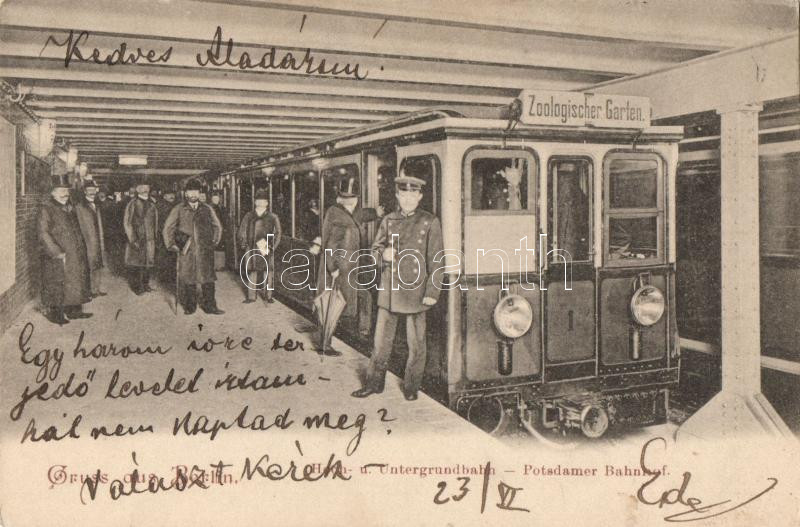 Kedves Aladárom!
Zoologischer Garten.
1
darabanth
Egy három ívre ter
jedő levelet írtam –
hát nem kaptad meg?
Választ kérek –
Gruss aus Berlin.
Hoch- u. Untergrundbahn – Potsdamer Bahnhof.
23/VI